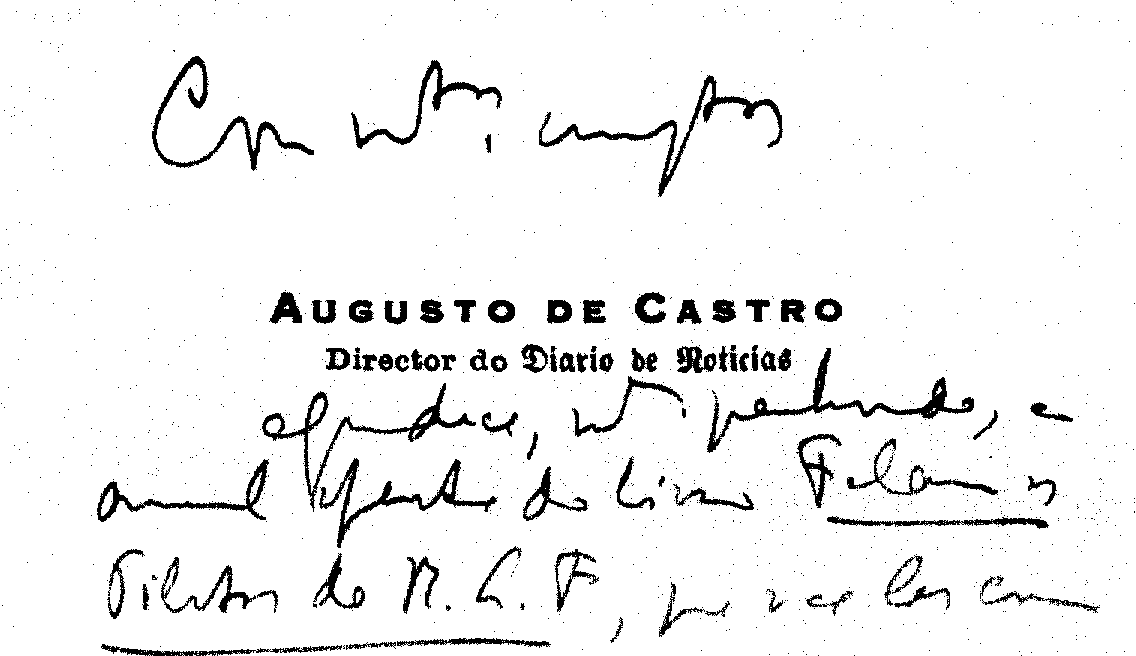 Com mtos. cumptos
AUGUSTO DE CASTRO
Director do Diario de Noticias
agradece, mto. penhorado, a
amavel oferta do livro Falam os
Pilotos da R. A. F, que vae ler com